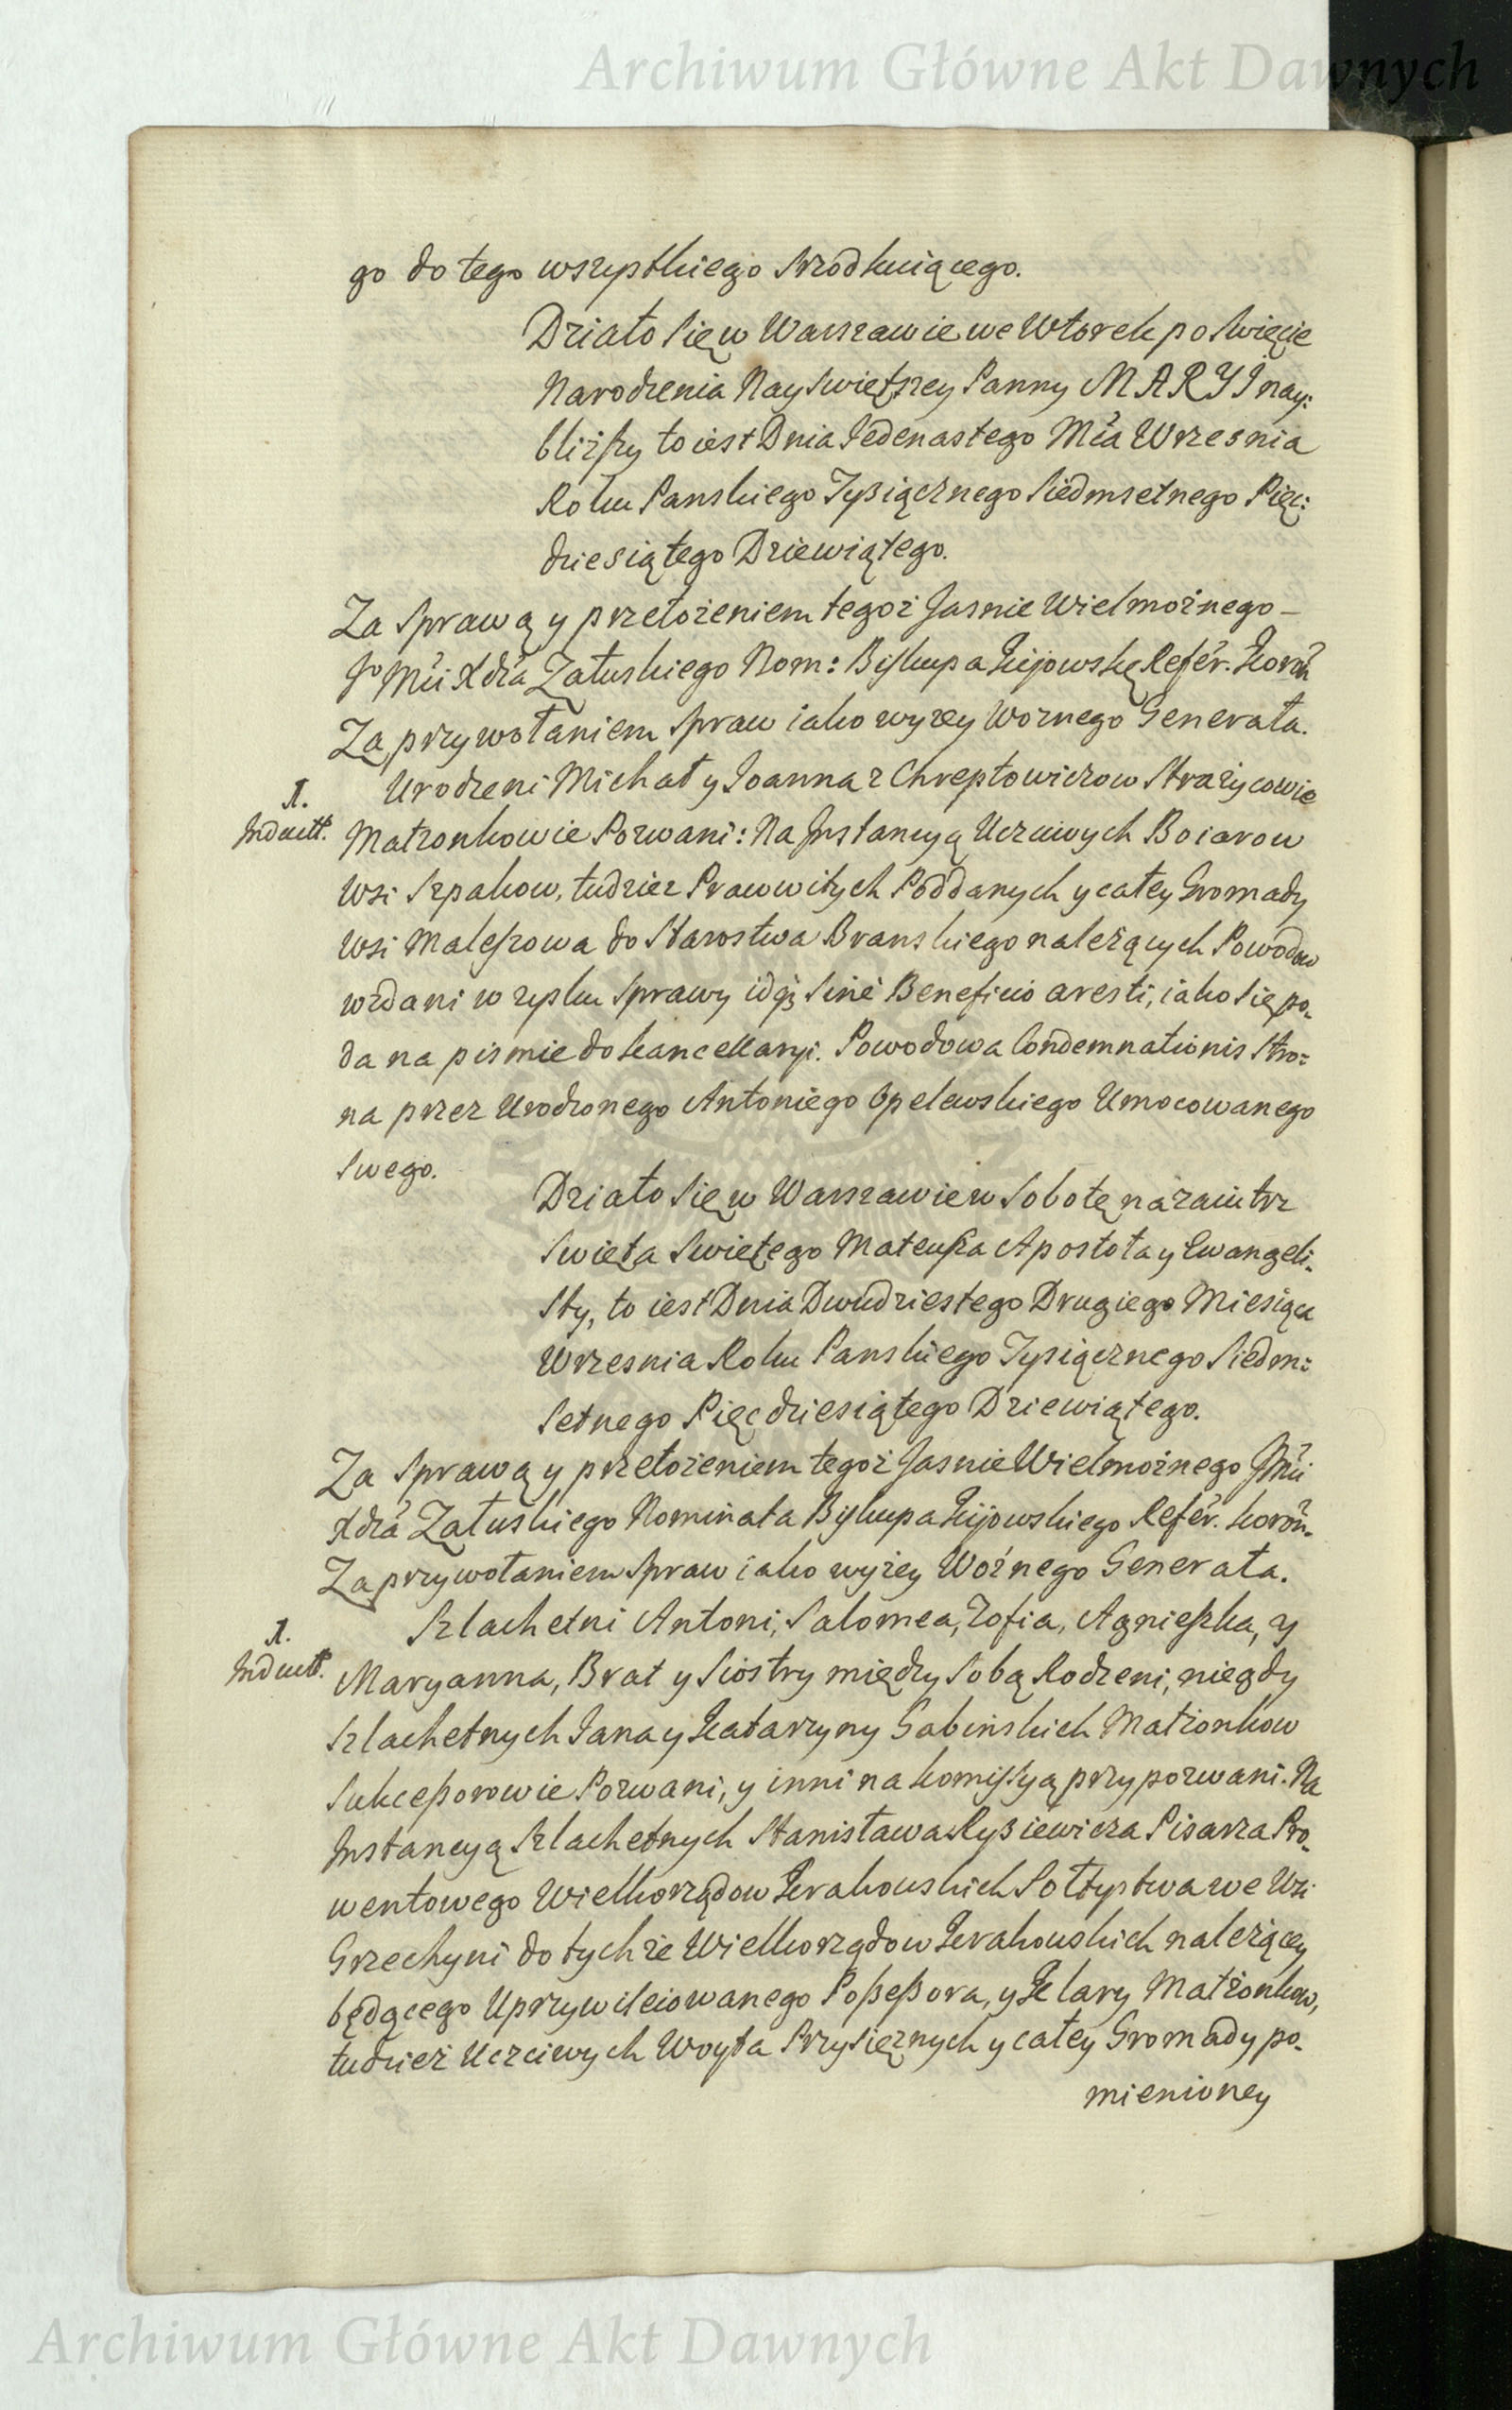 Archiwum Główne Akt Dawnych
go do tego wszystkiego srzodkuiącego.
Działo się w Warszawie we Wtorek po Swięcie
Narodzenia Nayswiętszey Panny MARYI nay:
bliższy to iest Dnia Jedenastego Mca Wrzesnia
Roku Panskiego Tysiącznego Siedmsetnego Pięć:
dziesiątego Dziewiątego.
Za Sprawą y przełożeniem tegoż Jasnie Wielmożnego –
Jo Mci Xdza Załuskiego Nom: Biskupa Kijowskº Refér. Koroñ
Za przywołaniem Spraw iako wyzey Woznego Generała.
Urodzeni Michał y Joanna z Chreptowiczow Strażycowie
1.
Inductt.
Małzonkowie Pozwani: Na Instancyą Uczciwych Boiarow
Wsi Szpakow, tudziez Prawowitych Poddanych y całey Gromady
Wsi Maleszowa do Starostwa Branskiego należących Powodow
wzdani w zysku Sprawy idq3 Sine Beneficio aresti, iako się po-
da na pismie do kancellaryi. Powodowa Condemnationis Stro:
na przez Urodzonego Antoniego Opelewskiego Umocowanego
Swego.
Działo się w Warszawie w Sobotę nazaiutrz
Swięta Swiętego Mateusza Apostoła y Ewangeli-
sty, to iest Dnia Dwudziestego Drugiego Miesiąca
Wrzesnia Roku Panskiego Tysiącznego Siedm:
setnego Pięcdziesiątego Dziewiątego.
Za Sprawą y przełożeniem tegoż Jasnie Wielmożnego JMci
Xdza Załuskiego Nominata Biskupa Kijowskiego Refér. Koroñ.
Za przywołaniem Spraw iako wyżey Woźnego Generała.
Szlachetni Antoni, Salomea, Zofia, Agnieszka, y
1.
Induct.
Maryanna, Brat y Siostry między Sobą Rodzeni, niegdy
Szlachetnych Jana y Katarzyny Gabinskich Małżonkow
Sukcessorowie Pozwani, y inni na Komissyą przypozwani. Na
Instancyą Szlachetnych Stanisława Rysiewicza Pisarza Pro-
wentowego Wielkorządow Krakowskich Sołtystwa we Wsi
Grzechyni do tychże Wielkorządow Krakowskich należącey
będącego Uprzywileiowanego Possessora, y Klary Małżonkow,
tudzież Uczciwych Woyta Przysięznych y całey Gromady po-
mienioney
Archiwum Główne Akt Dawnych